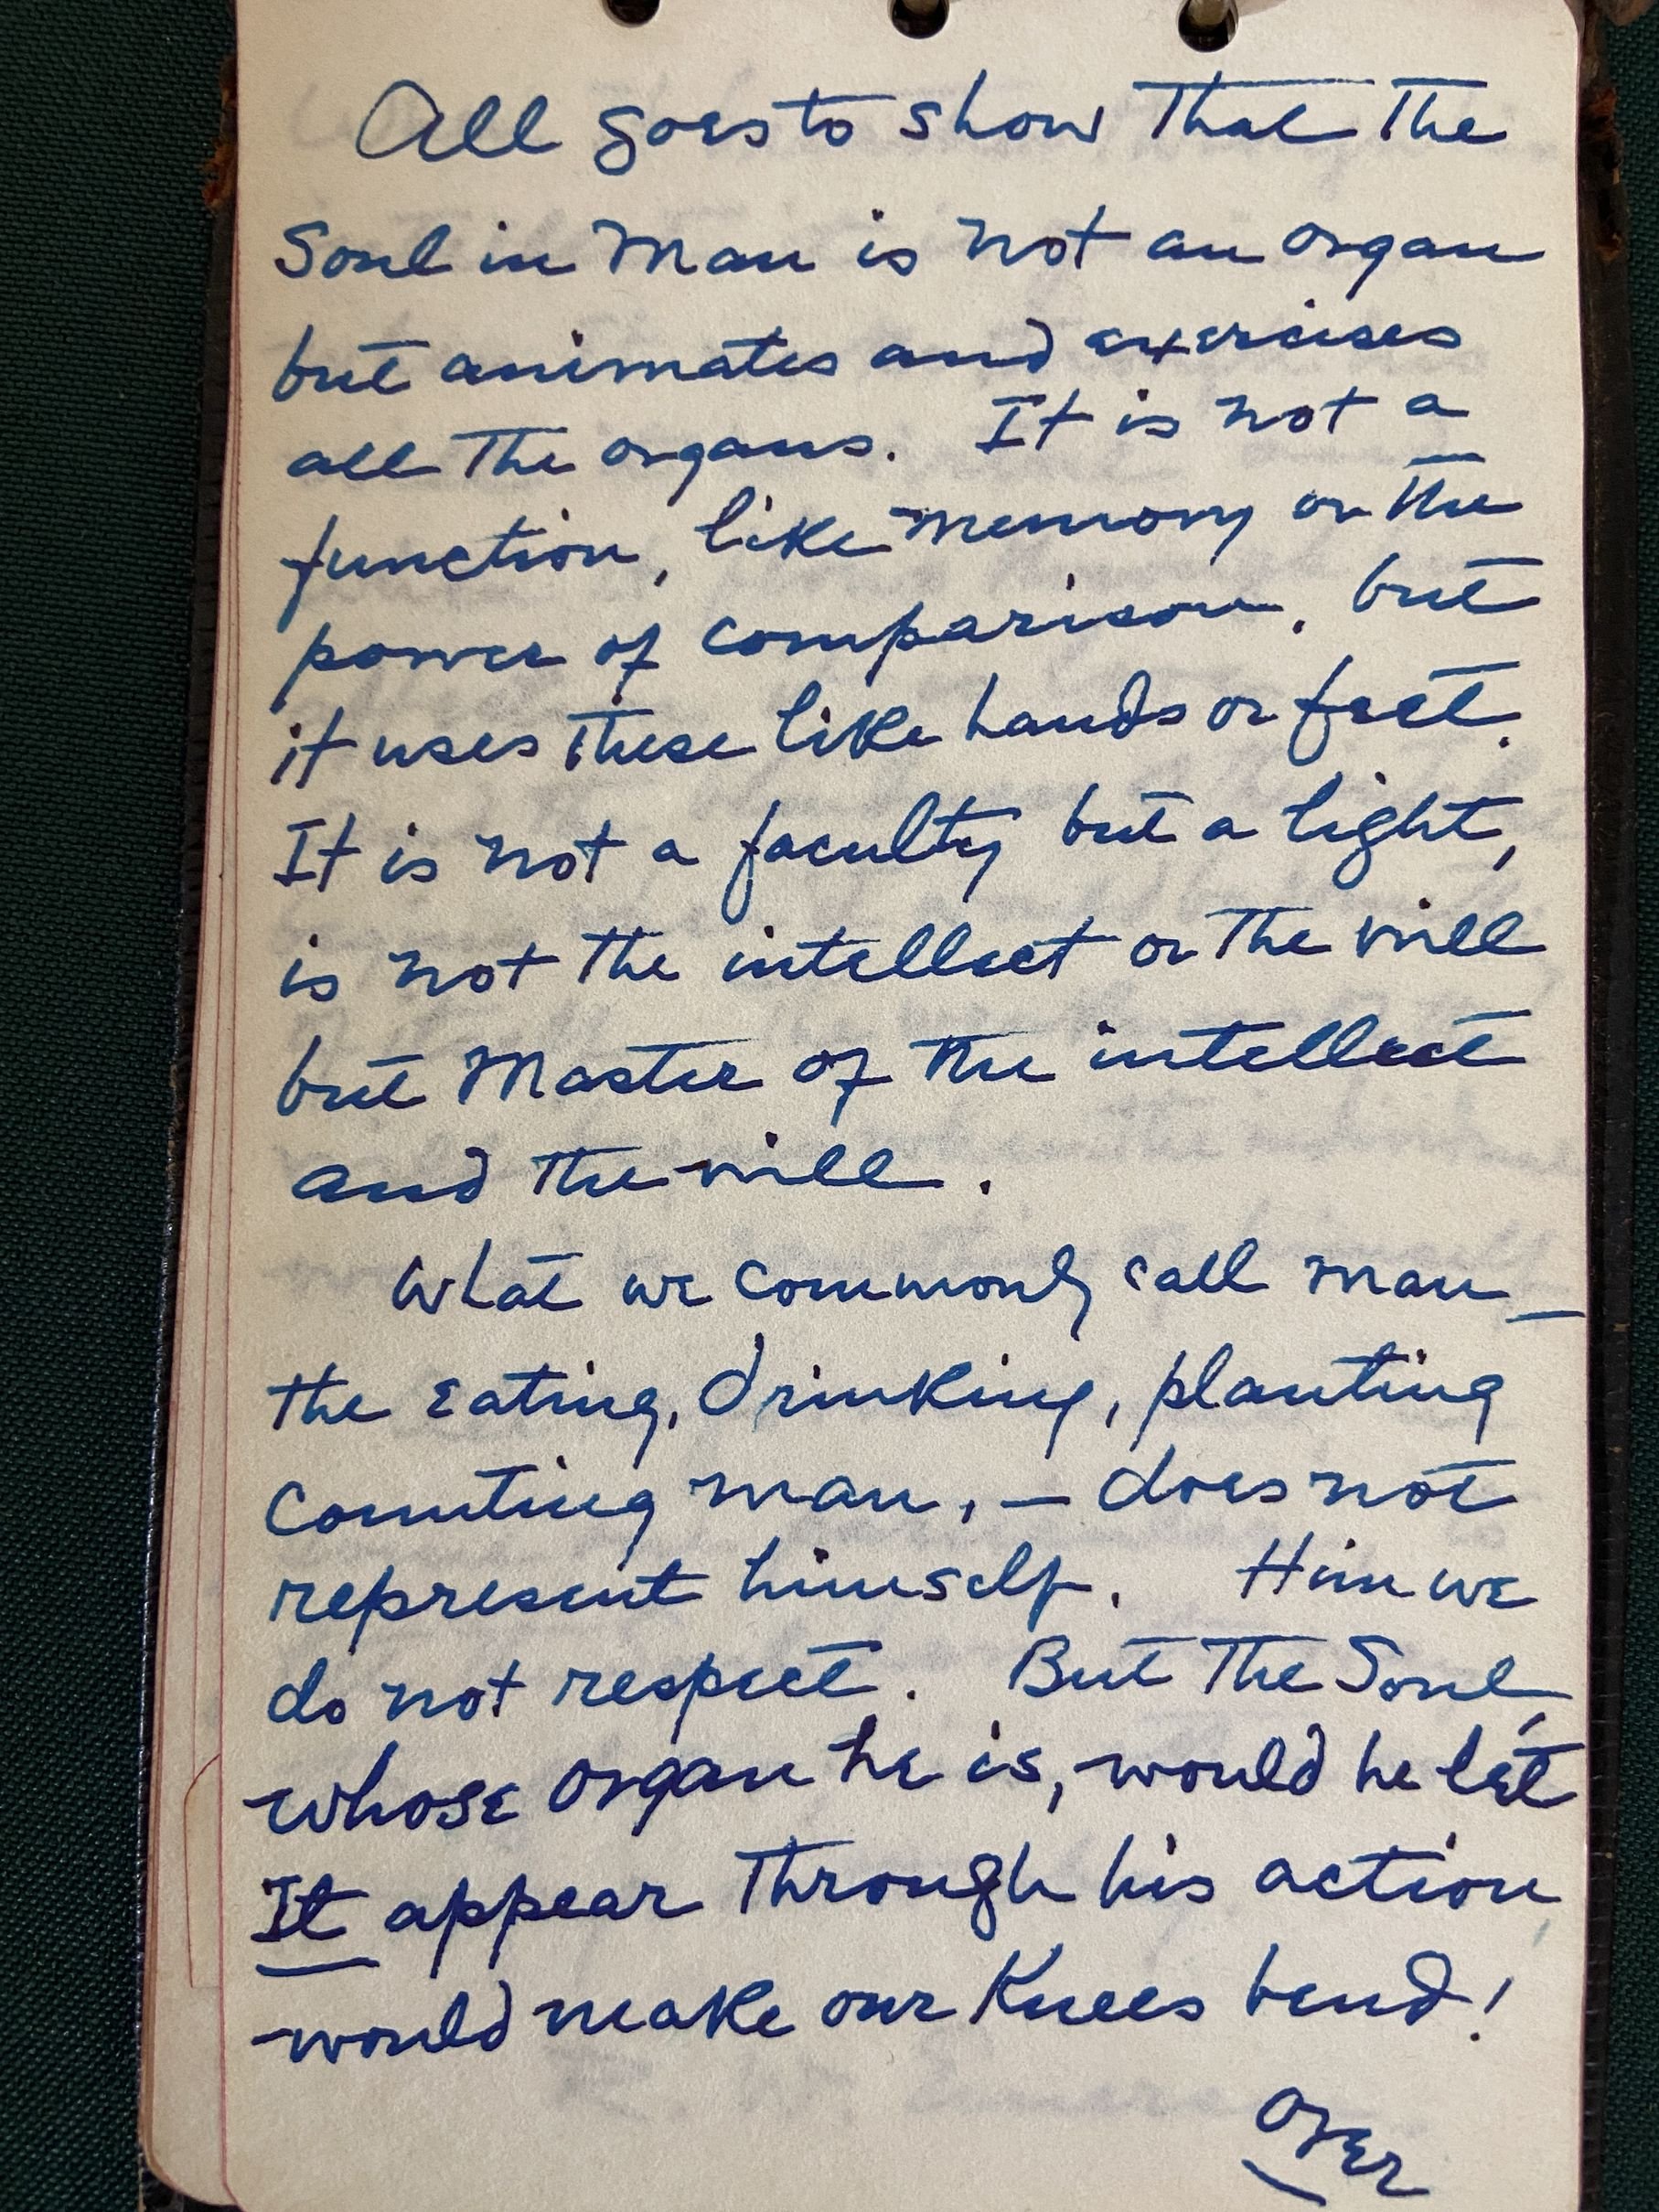 All goes to show that the
Soul in Man is not an organ
but animates and exercises
all the organs. It is not a
function, like memory or the
power of comparison, but
it uses these like hands or feet.
It is not a faculty but a light,
is not the intellect or the will
but Master of the intellect
and the will.
What we commonly call man _
the eating, drinking, planting
counting man, - does not
represent himself. Him we
do not respect. But the Soul,
whose organ he is, would he let
It appear through his action,
would make our Knees bend!
over